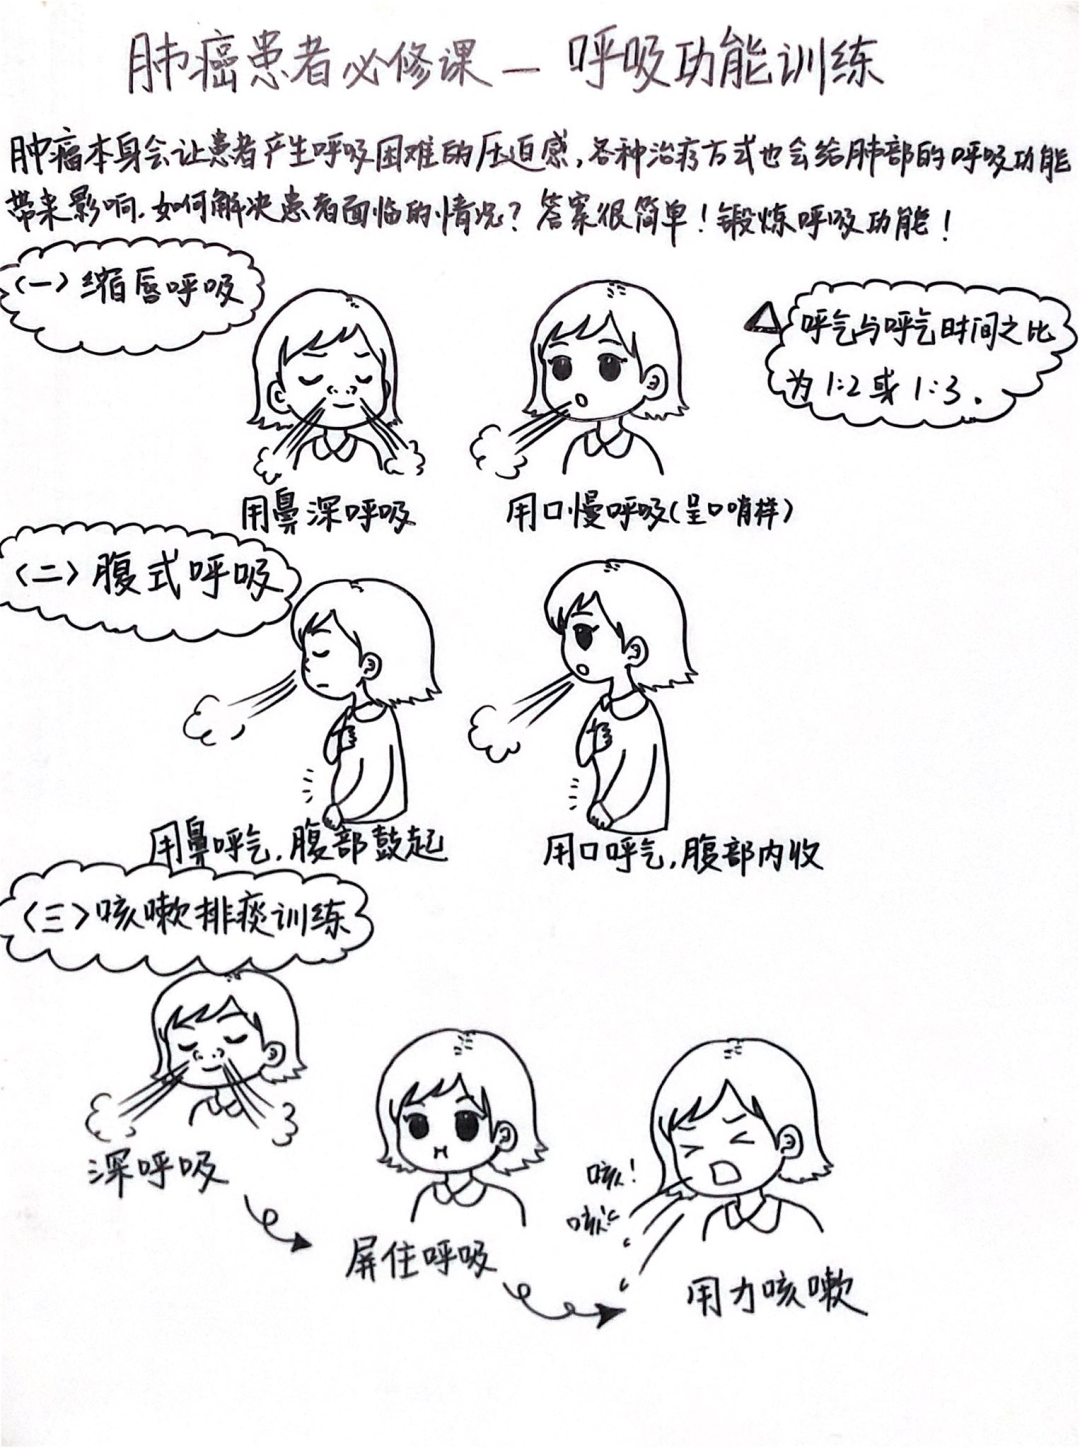 肺癌患者必修课—呼吸功能训练
肿瘤本身会让患者产生呼吸困难的压迫感,各种治疗方式也会给肺部的呼吸功能
带来影响.如何解决患者面临的情况?答案很简单!锻炼呼吸功能!
(一)缩唇呼吸
△呼气与呼气时间之比
为1:2或1:3.
用鼻深呼吸
用口慢呼吸(呈口哨样)
(二)腹式呼吸
用鼻呼气,腹部鼓起
用口呼气,腹部内收
(三)咳嗽排痰训练
深呼吸
屏住呼吸
咳!
咳!
用力咳嗽